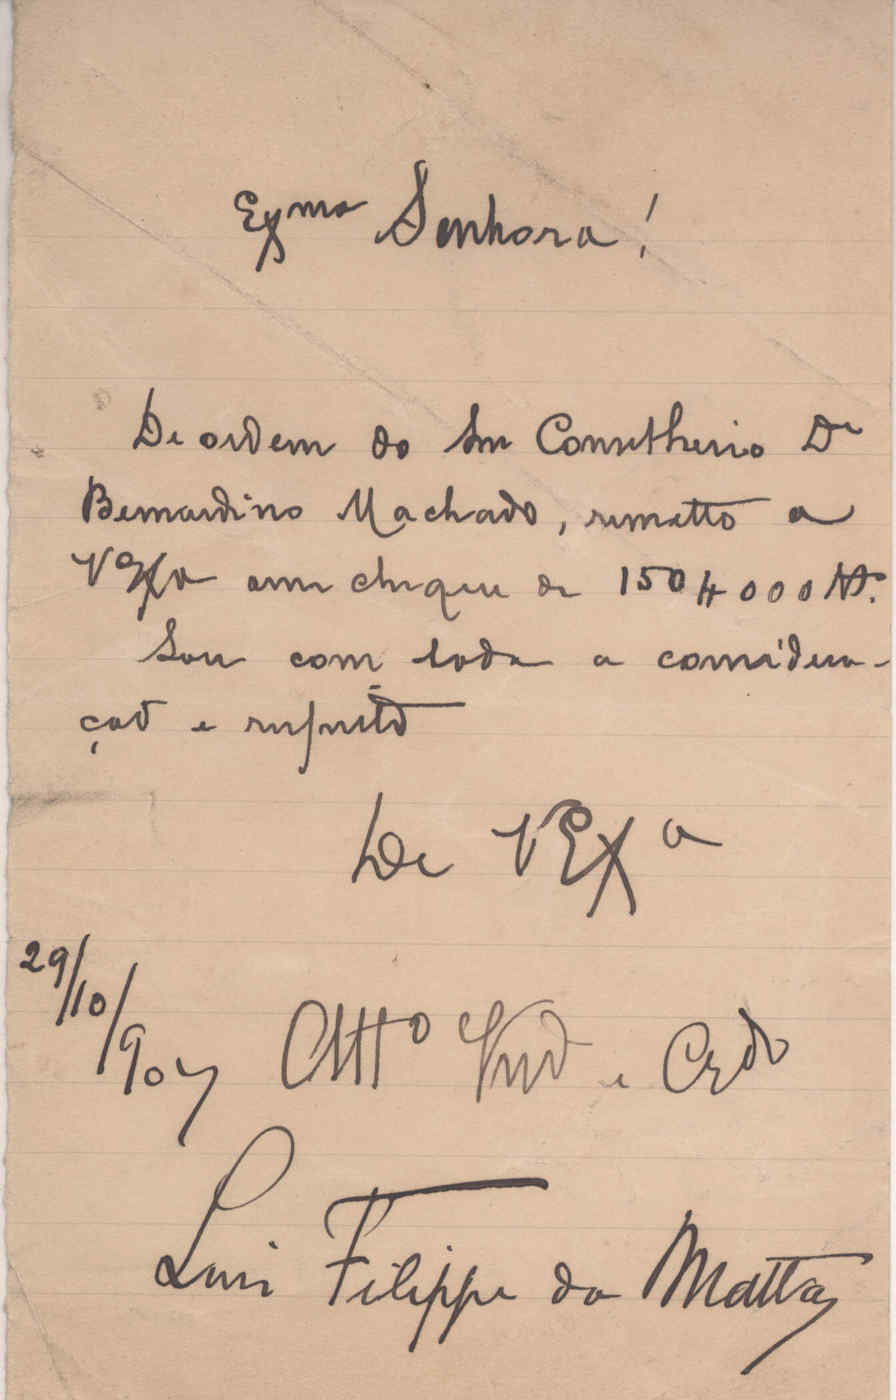 Exma Senhora!
De ordem do Snr Conselheiro Dr
Bernardino Machado, remetto a
V Exa um cheque de 150$000
Sou com toda a considera-
ção e respeito
De V Exa
29/10/907 Atto Vnd e Crdo
Luis Filippe da Matta